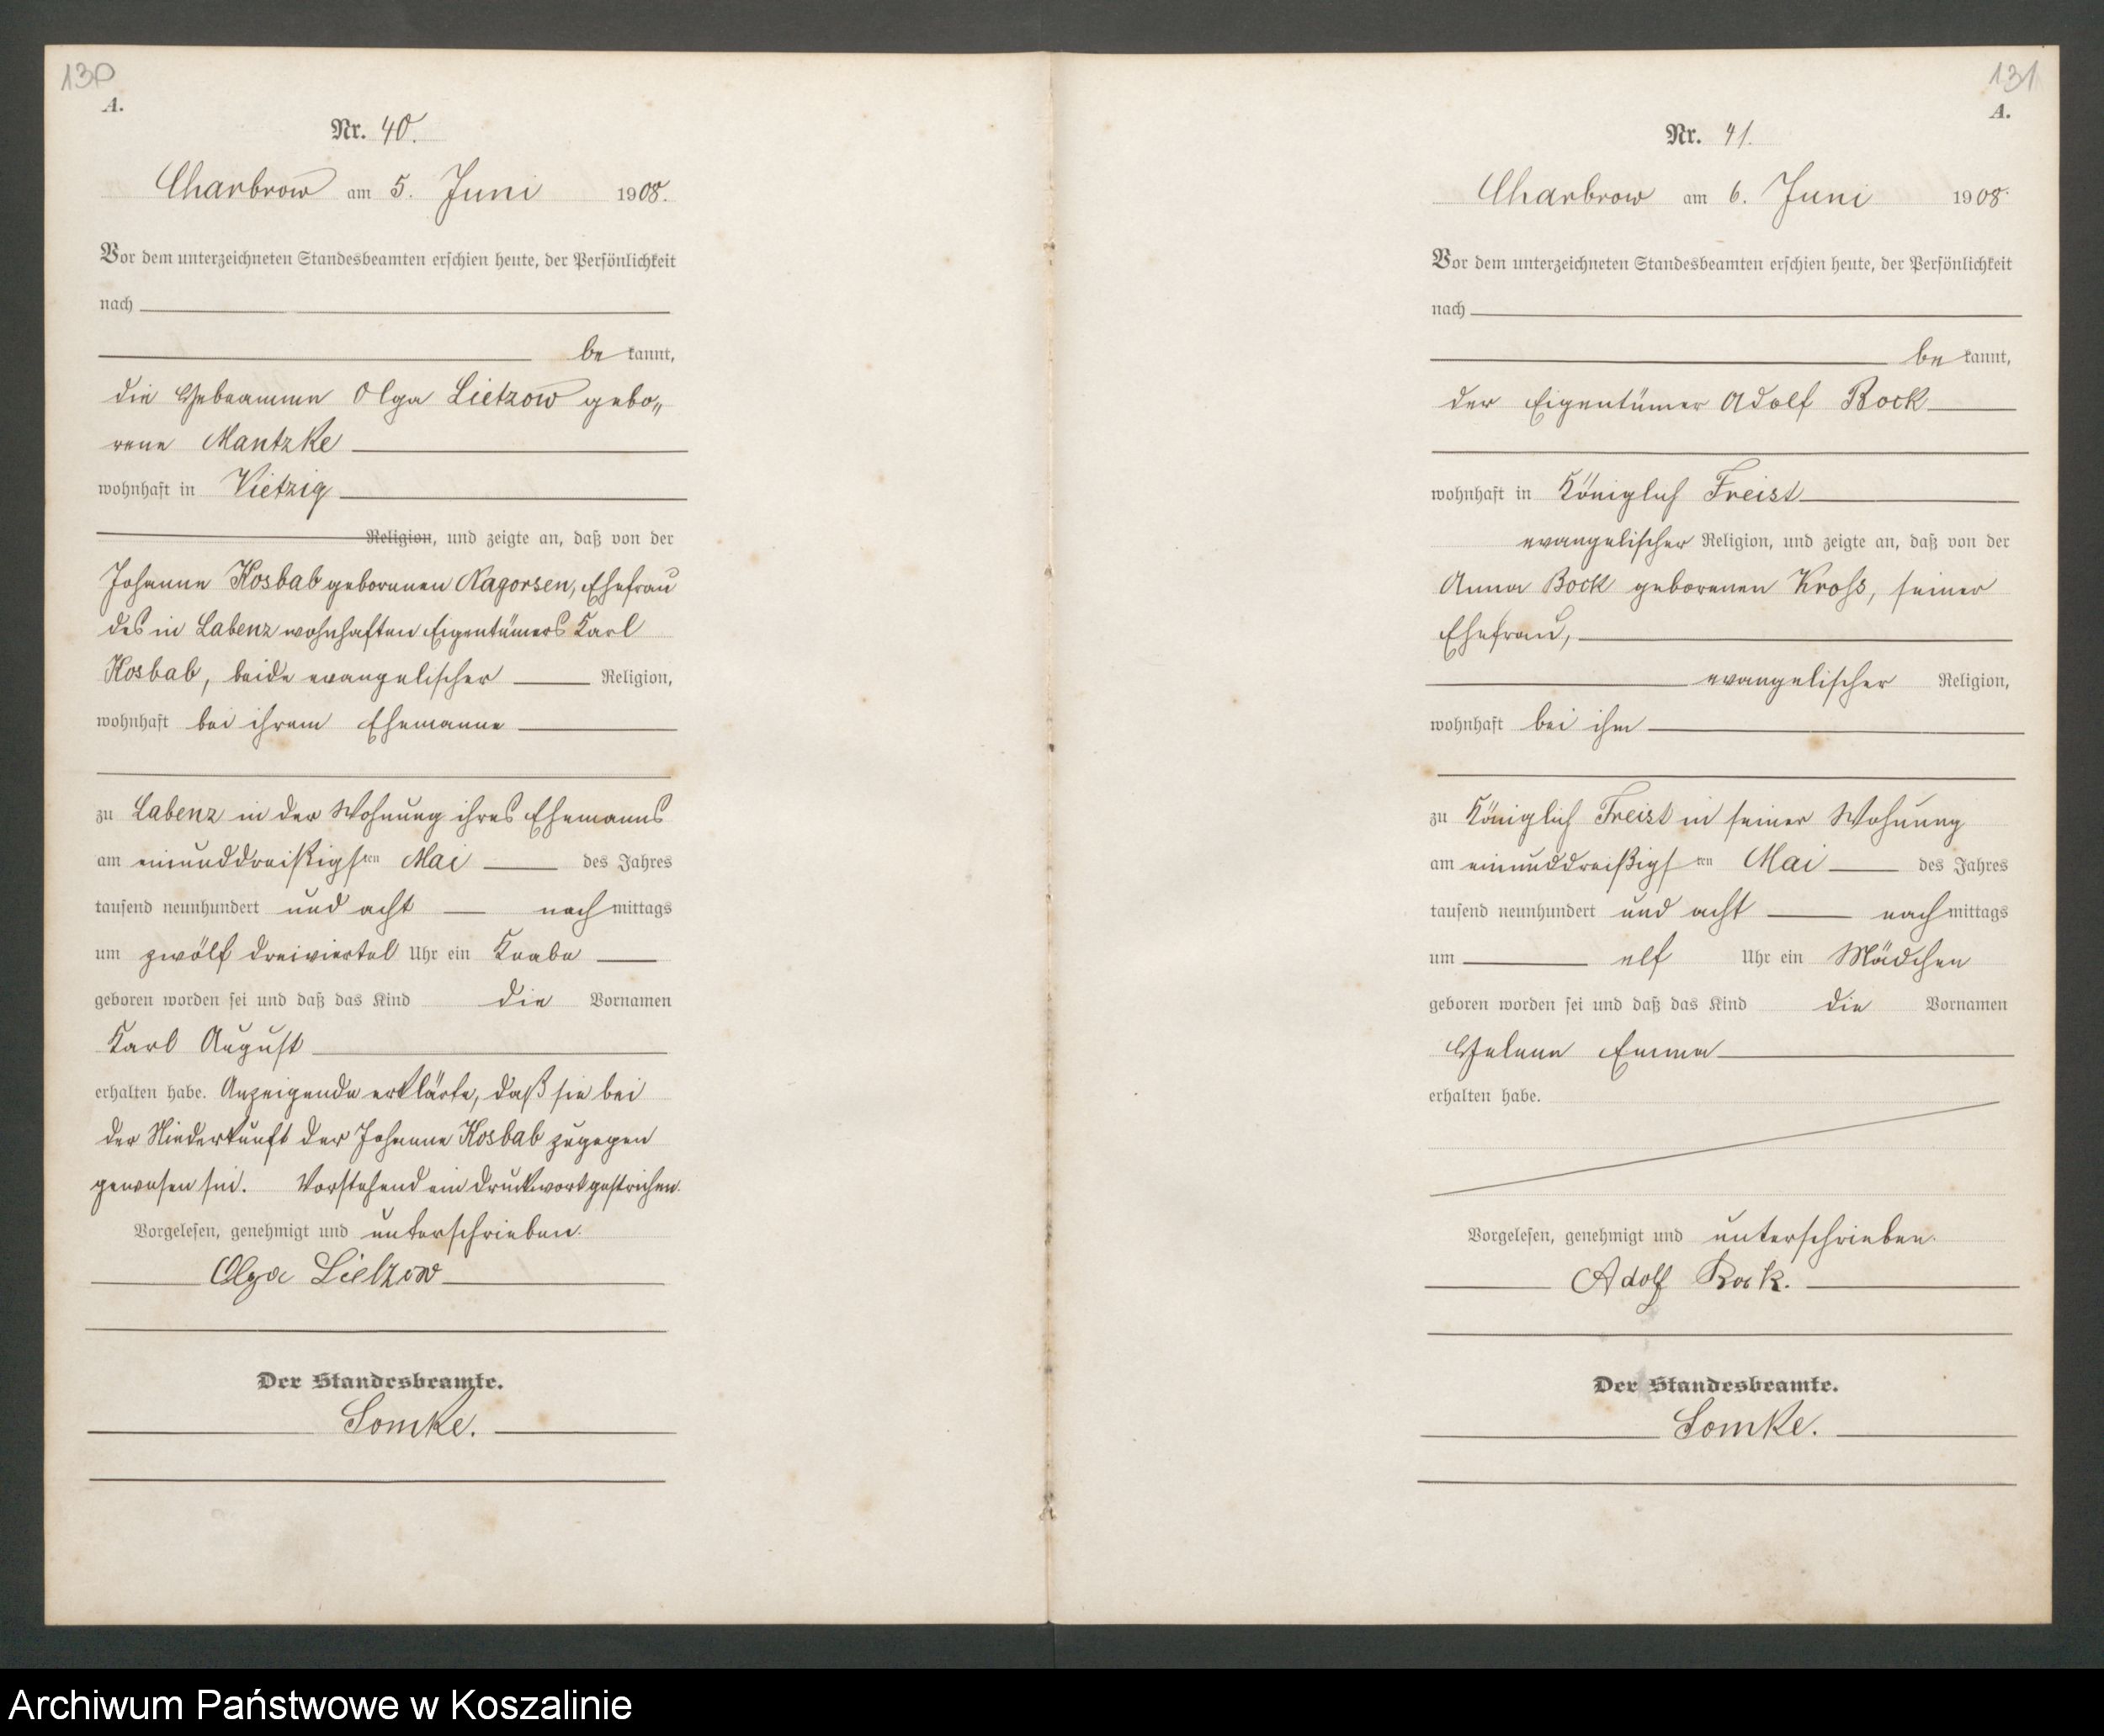 130
A.
Nr. 40.
Charbrow am 5. Juni 1908.
Vor dem unterzeichneten Standesbeamten erschien heute, der Persönlichkeit
nach
be kannt,
die Hebeamme Olga Lietzow gebo„
rene Mantzke
wohnhaft in Vietzig
Religion, und zeigte an, daß von der
Johanne Kosbab geborenen Nagorsen, Ehefrau
des in Labenz wohnhaften Eigentümers Karl
Kosbab, beide evangelischer Religion,
wohnhaft bei ihrem Ehemanne
zu Labenz in der Wohnung ihres Ehemanns
am einunddreißigsten Mai des Jahres
tausend neunhundert und acht nach mittags
um zwölf dreiviertel Uhr ein Knabe
geboren worden sei und daß das Kind die Vornamen
Karl August
erhalten habe. Anzeigende erklärte, daß sie bei
der Niederkunft der Johanne Kosbab zugegen
gewesen sei. Vorstehend ein Druckwort gestrichen.
Vorgelesen, genehmigt und unterschrieben.
Olga Lietzow
Der Standesbeamte.
Lomke.
131
A.
Nr. 41.
Charbrow am 6. Juni 1908.
Vor dem unterzeichneten Standesbeamten erschien heute, der Persönlichkeit
nach
be kannt,
der Eigentümer Adolf Bock
wohnhaft in Königlich Freist
evangelischer Religion, und zeigte an, daß von der
Anna Bock geborenen Kroß, seiner
Ehefrau,
evangelischer Religion,
wohnhaft bei ihm
zu Königlich Freist in seiner Wohnung
am einunddreißigsten Mai des Jahres
tausend neunhundert und acht nach mittags
um elf Uhr ein Mädchen
geboren worden sei und daß das Kind die Vornamen
Helene Emma
erhalten habe.
Vorgelesen, genehmigt und unterschrieben.
Adolf Bock.
Der Standesbeamte.
Lomke.
Archiwum Państwowe w Koszalinie